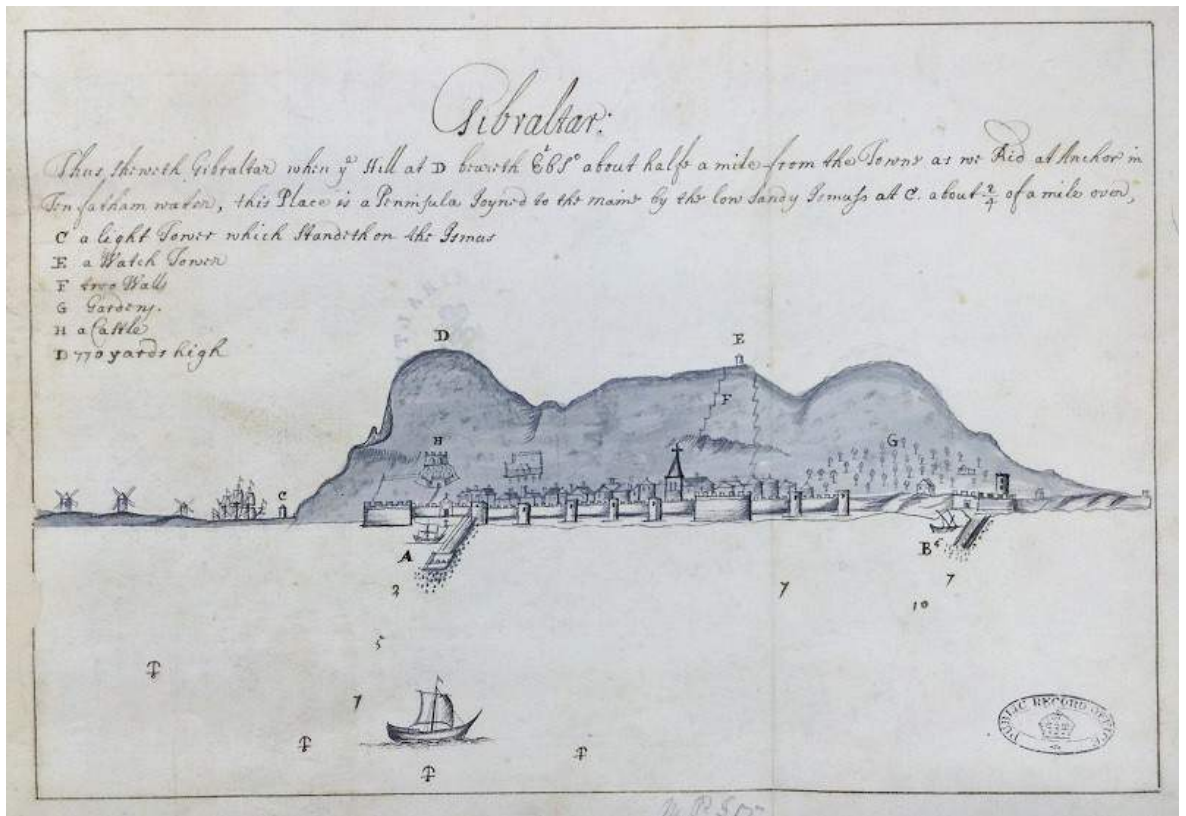 Gibraltar:
Thus sheweth Gibraltar when yᵉ Hill at D beareth EᵗbSᵒ about halfe a mile from the Towne as we Rid at Anchor in
Ten fatham water, this Place is a Peninsula Joyned to the maine by the low sandy Ismuss at C. about 2/4 of a mile over,
C a light Tower which Standeth on the Ismus
E a Watch Tower
F two Walls
G Gardens.
H a Castle
D 770 yards high
D
E
F
H
G
C
A
B
6
2
7
7
10
5
7
PUBLIC RECORD OFFICE